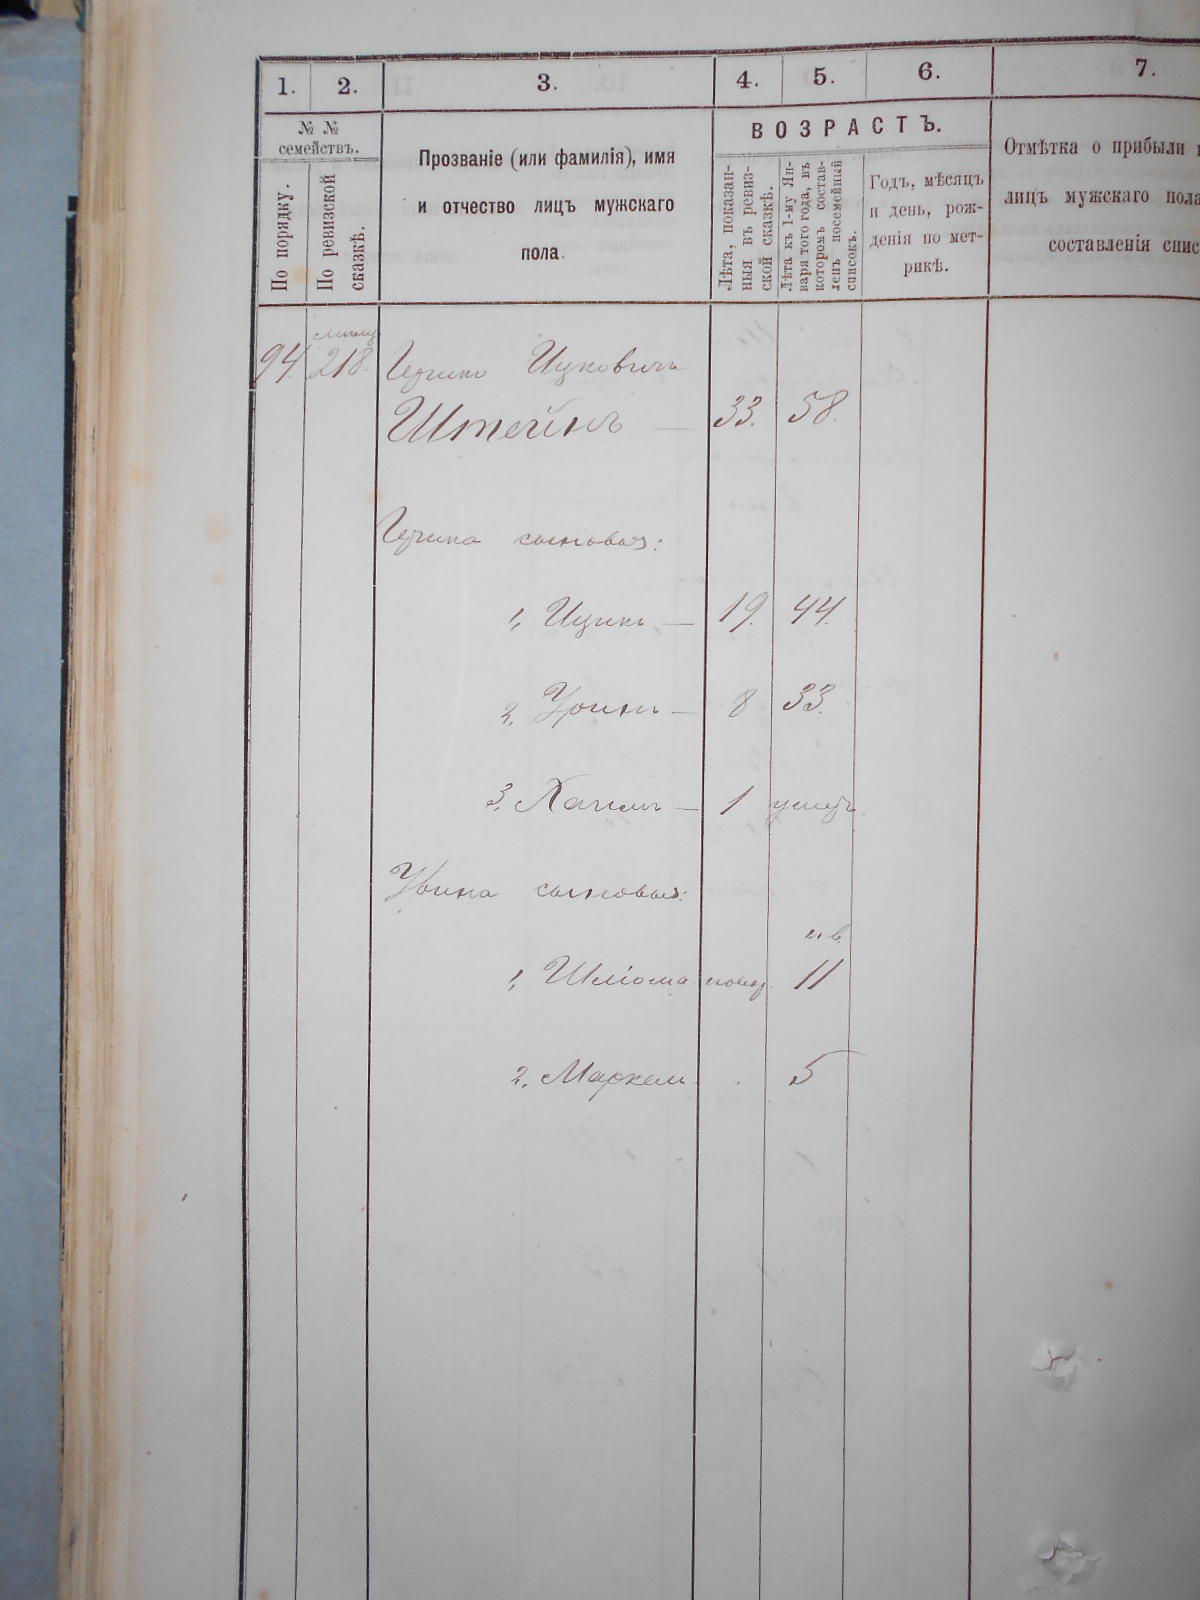 1. 2. 3. 4. 5. 6. 7.
№ № семействъ.
По порядку.
По ревизской сказкѣ.
Прозваніе (или фамилія), имя
и отчество лицъ мужскаго
пола.
ВОЗРАСТЪ.
Лѣта, показан-
ныя въ ревиз-
ской сказкѣ.
Лѣта къ 1-му Ян-
варя того года, въ
которомъ состав-
ленъ посемейный
списокъ.
Годъ, мѣсяцъ
и день, рож-
денія по мет-
рикѣ.
Отмѣтка о прибыли
лицъ мужскаго пола
составленія спис
94. 218. Ицковичъ
Штейнъ — 33. 58.
сыновья:
1, Ицикъ — 19. 44.
2, — 8 33.
3, Хаимъ — 1 умеръ.
сыновья:
1, Шліома новор. 11
2, Мархель 5